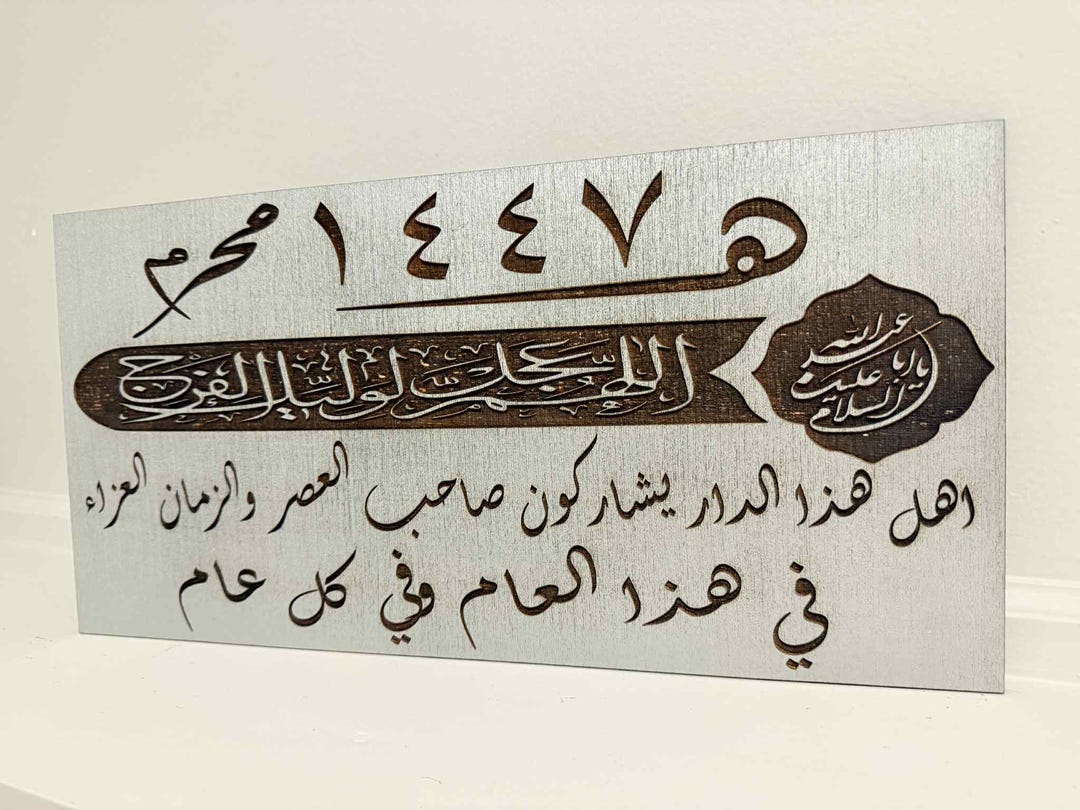 محرم ١٤٤٧ هـ
اللهم عجل لوليك الفرج
يا ابا عبد الله عليك السلام
اهل هذا الدار يشاركون صاحب العصر والزمان العزاء
في هذا العام وفي كل عام